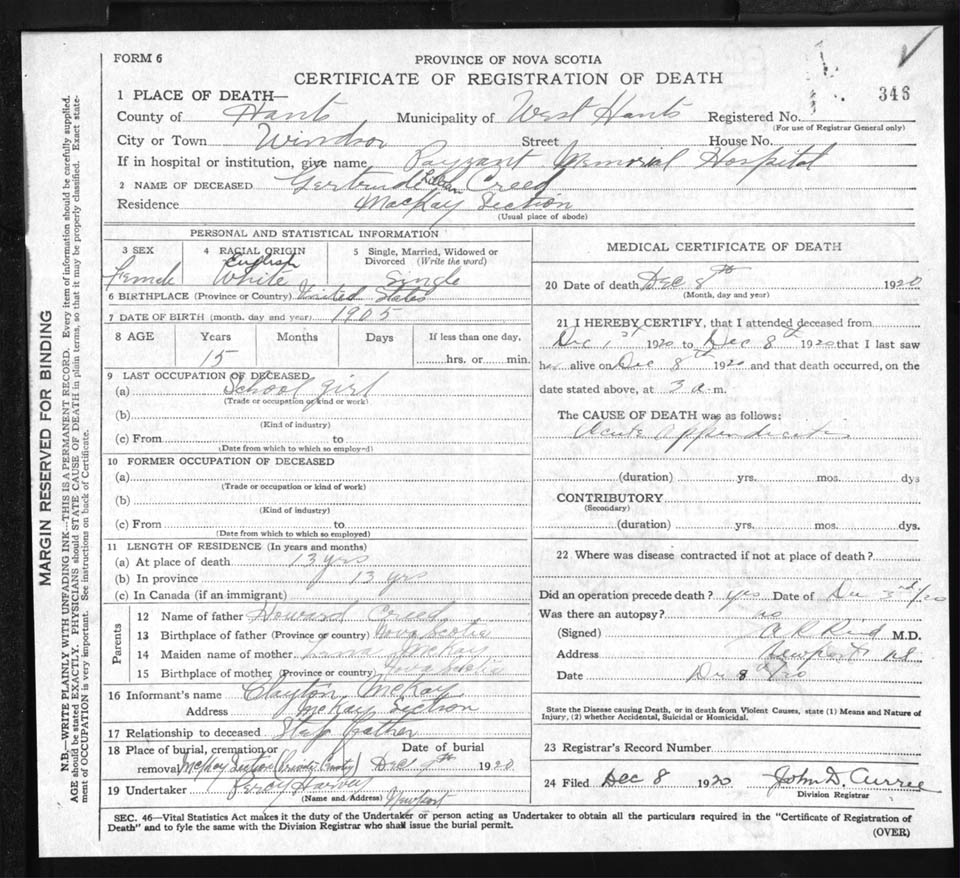 FORM 6
PROVINCE OF NOVA SCOTIA
CERTIFICATE OF REGISTRATION OF DEATH
346
1 PLACE OF DEATH—
County of Hants Municipality of West Hants Registered No.
(For use of Registrar General only)
City or Town Windsor Street House No.
If in hospital or institution, give name Payzant Memorial Hospital
2 NAME OF DECEASED Gertrude Creed
Residence MacKay Section
(Usual place of abode)
MARGIN RESERVED FOR BINDING
N.B.—WRITE PLAINLY WITH UNFADING INK—THIS IS A PERMANENT RECORD. Every item of information should be carefully supplied.
AGE should be stated EXACTLY. PHYSICIANS should STATE CAUSE OF DEATH in plain terms, so that it may be properly classified. Exact state-
ment of OCCUPATION is very important. See instructions on back of Certificate.
PERSONAL AND STATISTICAL INFORMATION
3 SEX 4 RACIAL ORIGIN 5 Single, Married, Widowed or
Divorced (Write the word)
English
Female White Single
6 BIRTHPLACE (Province or Country) United States
7 DATE OF BIRTH (month, day and year) 1905
8 AGE Years Months Days If less than one day,
15 hrs. or min.
9 LAST OCCUPATION OF DECEASED
(a) School girl
(Trade or occupation of kind or work)
(b)
(Kind of industry)
(c) From to
(Date from which to which so employed)
10 FORMER OCCUPATION OF DECEASED
(a)
(Trade or occupation or kind of work)
(b)
(Kind of industry)
(c) From to
(Date from which to which so employed)
11 LENGTH OF RESIDENCE (In years and months)
(a) At place of death 13 yrs
(b) In province 13 yrs
(c) In Canada (if an immigrant)
Parents
12 Name of father Howard Creed
13 Birthplace of father (Province or country) Nova Scotia
14 Maiden name of mother McKay
15 Birthplace of mother (Province or country) Nova Scotia
16 Informant's name Clayton McKay
Address McKay Section
17 Relationship to deceased Step father
18 Place of burial, cremation or Date of burial
removal McKay Section Dec 1920
19 Undertaker Harvey
(Name and Address) Newport
MEDICAL CERTIFICATE OF DEATH
20 Date of death Dec 8th 1920
(Month, day and year)
21 I HEREBY CERTIFY, that I attended deceased from
Dec 1st 1920 to Dec 8th 1920 that I last saw
her alive on Dec 8th 1920 and that death occurred, on the
date stated above, at 3 a m.
The CAUSE OF DEATH was as follows:
Acute Appendicitis
(duration) yrs. mos. dys
CONTRIBUTORY
(Secondary)
(duration) yrs. mos. dys.
22 Where was disease contracted if not at place of death?
Did an operation precede death? yes Date of Dec 3rd/20
Was there an autopsy? no
(Signed) A R Reid M.D.
Address Newport N.S.
Date Dec 8th/20
State the Disease causing Death, or in death from Violent Causes, state (1) Means and Nature of
Injury, (2) whether Accidental, Suicidal or Homicidal.
23 Registrar's Record Number
24 Filed Dec 8 1920 John D. Currie
Division Registrar
SEC. 46—Vital Statistics Act makes it the duty of the Undertaker or person acting as Undertaker to obtain all the particulars required in the "Certificate of Registration of
Death" and to fyle the same with the Division Registrar who shall issue the burial permit.
(OVER)